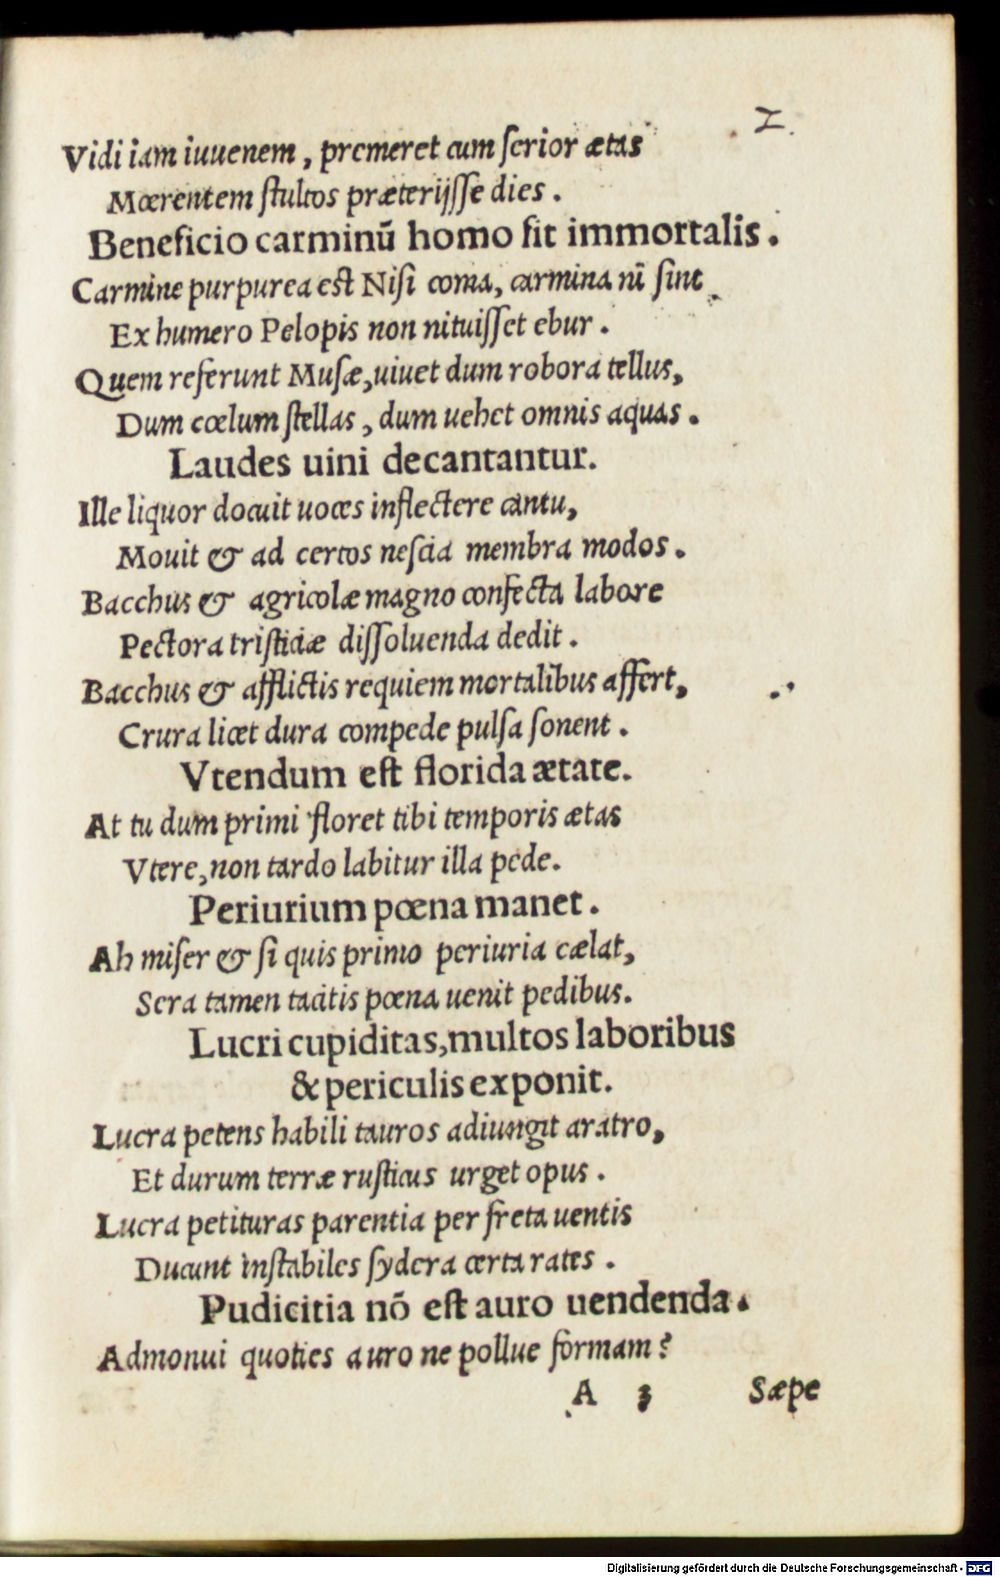 2
Vidi iam iuuenem, premeret cum serior ætas
Mœrentem stultos præterijsse dies.
Beneficio carminū homo fit immortalis.
Carmine purpurea est Nisi coma, carmina ni sint
Ex humero Pelopis non nituisset ebur.
Quem referunt Musæ, uiuet dum robora tellus,
Dum cœlum stellas, dum uehet omnis aquas.
Laudes uini decantantur.
Ille liquor docuit uoces inflectere cantu,
Mouit & ad certos nescia membra modos.
Bacchus & agricolæ magno confecta labore
Pectora tristiciæ dissoluenda dedit.
Bacchus & afflictis requiem mortalibus affert,
Crura licet dura compede pulsa sonent.
Vtendum est florida ætate.
At tu dum primi floret tibi temporis ætas
Vtere, non tardo labitur illa pede.
Periurium pœna manet.
Ah miser & si quis primo periuria cælat,
Sera tamen tacitis pœna uenit pedibus.
Lucri cupiditas, multos laboribus
& periculis exponit.
Lucra petens habili tauros adiungit aratro,
Et durum terræ rusticus urget opus.
Lucra petituras parentia per freta uentis
Ducunt instabiles sydera certa rates.
Pudicitia nō est auro uendenda.
Admonui quoties auro ne pollue formam?
A 3 Sæpe
Digitalisierung gefördert durch die Deutsche Forschungsgemeinschaft - DFG